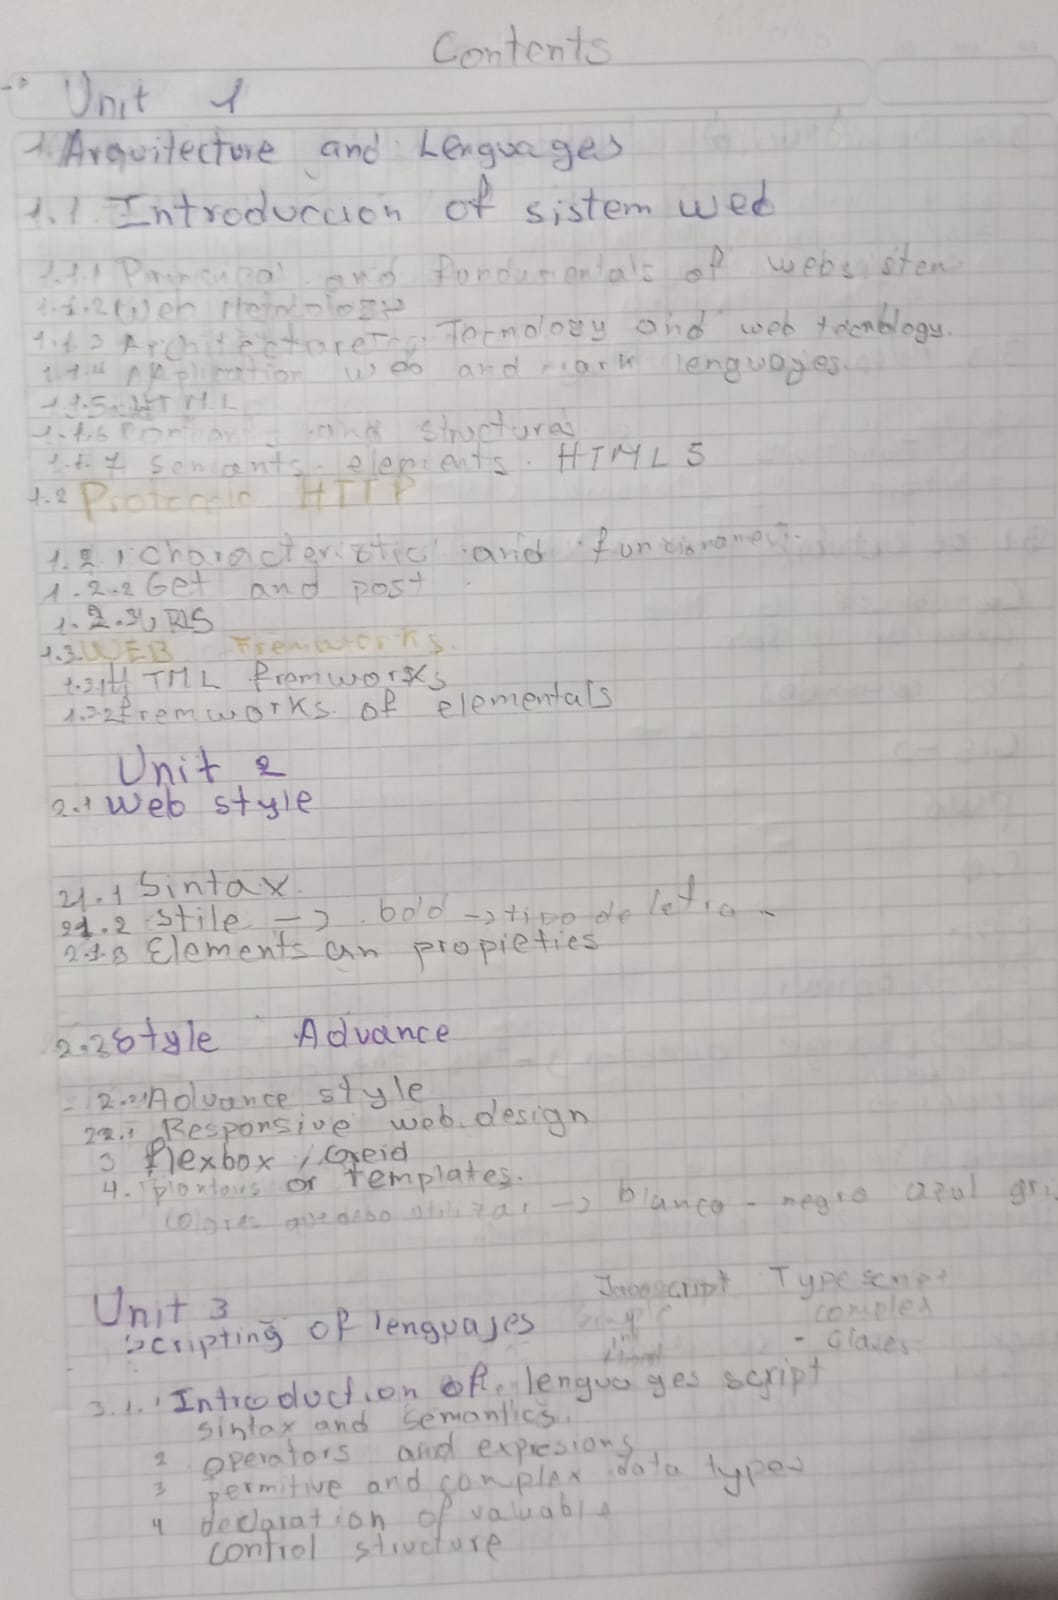 Contents
Unit 1
1. Arquitecture and Lenguages
1.1 Introduccion of sistem web
1.1.1 and Fundamentals of websistem
1.1.2
1.1.3 Architecture Tecnology and web tecnblogy.
1.1.4 Application web and mark lenguages
1.1.5 HTML
1.1.6 and structures
1.1.7 elements. HTML5
1.2 Protocolo HTTP
1.2.1 characteristic and
1.2.2 Get and post
1.2.3 URLS
1.3 WEB Fremworks.
1.3.1 HTML fromworks
1.3.2 fremworks of elementals
Unit 2
2.1 Web style
21.1 Sintax.
21.2 stile -> bold -> tipo de letra
2.1.3 Elements an propieties
2.2 Style Advance
2.2 Advance style
22.1 Responsive web design
3 flexbox / Greid
4. or templates.
Colores que debo utilizar -> blanco - negro azul gri
Unit 3 Javascript Typescript
Scripting of lenguajes complex
- Clases
3.1. Introduction of lenguages script
sintax and semantics.
2 operators and expresions
3 permitive and complex data types
4 declaration of valuable
control structure